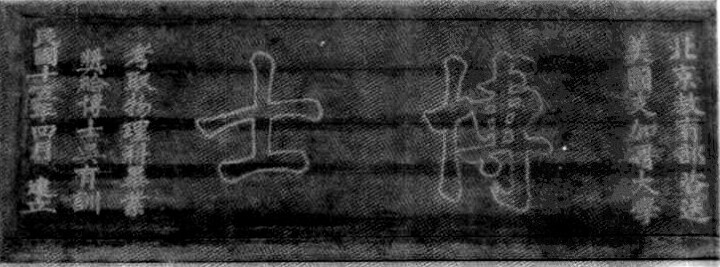 北京教育部咨送
美國加哥大學
博士
考取物理畢業
獎給博士吳有訓
民國十年四月 立